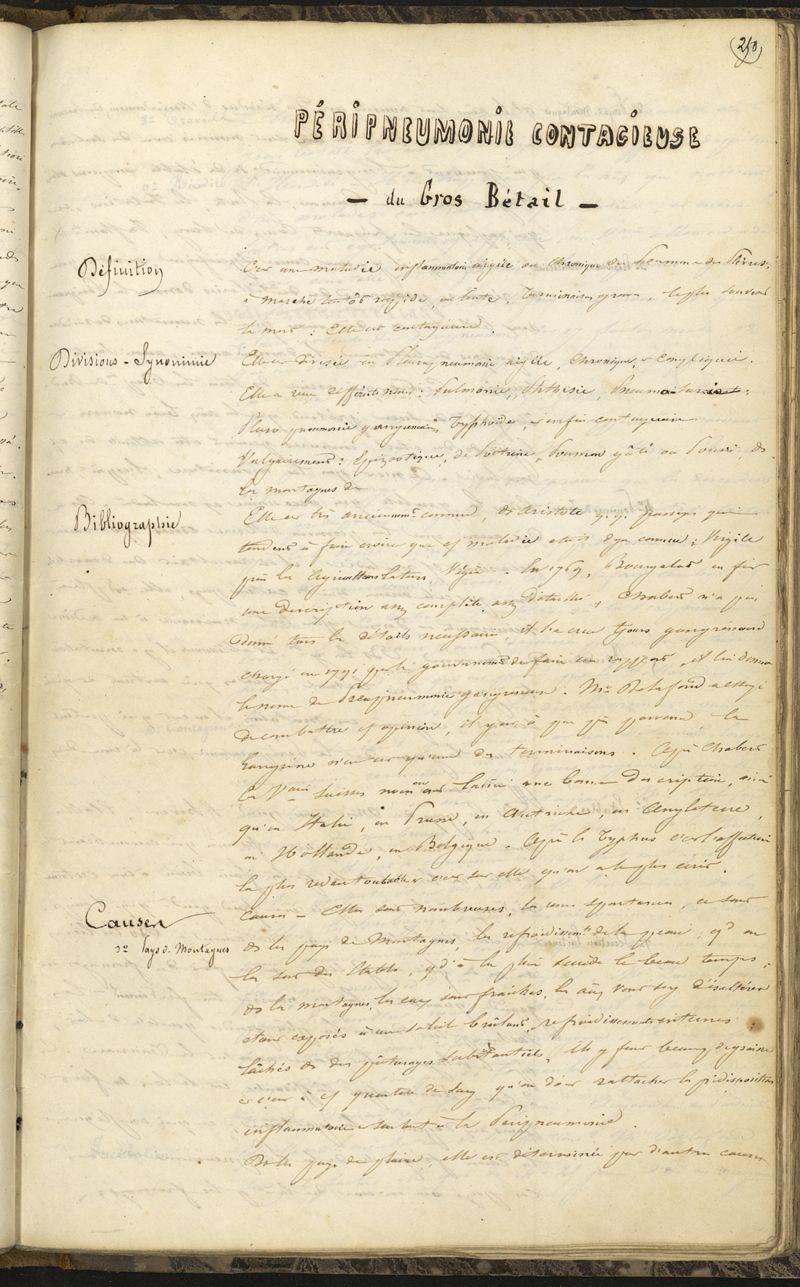 250
PÉRIPNEUMONIE CONTAGIEUSE
- du Gros Bétail -
Définition
C'est une maladie inflammatoire aigüe ou chronique du Poumon et des Plèvres,
à marche tantôt rapide, ou lente, Terminaison grave, le plus souvent
la mort : Elle est contagieuse.
Divisions - Synonimie
Elle est divisée en Pleuropneumonie aigüe, Chronique, et Compliquée.
Elle a reçu différents noms : Pulmonie, Phthisie,
Pleuro pneumonie gangréneuse, Typhoïde, et enfin contagieuse
Vulgairement : Epizootique, de Poitrine, Poumon gâté ou Pourri, ds
les montagnes de
Bibliographie
Elle est très anciennemt connue, ds Aristote q. q. passages qui
tendent à faire croire que cet maladie etait déja connue ; Virgile
puis les agriculteurs latins, Végèce. En 1769, Bourgelat en fit
une description assez complète, assez détaillée, Chabert n'a pas
donné tous les détails necessaires, il l'a crue tjours gangréneuse
chargé en 1791 par le gouvernemt de faire un rapport, il lui donna
le nom de Péripneumonie gangreneuse. Mr Delafond a essayé
de combattre cet opinion, il y est à peu près parvenu, la
Gangrène n'en est qu'une des terminaisons. Après Chabert
les Vres suisses nous ont laissé une bonne description, ainsi
qu'en Italie, en Prusse, en Autriche, en Angleterre,
en Hollande, en Belgique. Après le Typhus c'est l'affection
la plus redoutable et c'est sur elle qu'on a le plus écrit.
Causes
1° Pays de Montagnes
Causes - Elles sont nombreuses, les unes spontanées, ce sont
ds les pays de Montagnes, les refroidissemts de la peau, qd on
les sort des étables, qd à la pluie succède le beau temps,
ds les montagnes, les eaux sont fraîches, les aux vont s'y désaltérer
étant exposés à un soleil brûlant, refroidissements internes :
lâchés ds des pâturages substantiels, ils y font beaucp de graisse
et c'est à cet quantité de sang qu'on doit rattacher la prédisposition
inflammatoire et surtout à la Péripneumonie.
Ds les pays de plaine, elle est déterminée par d'autres causes